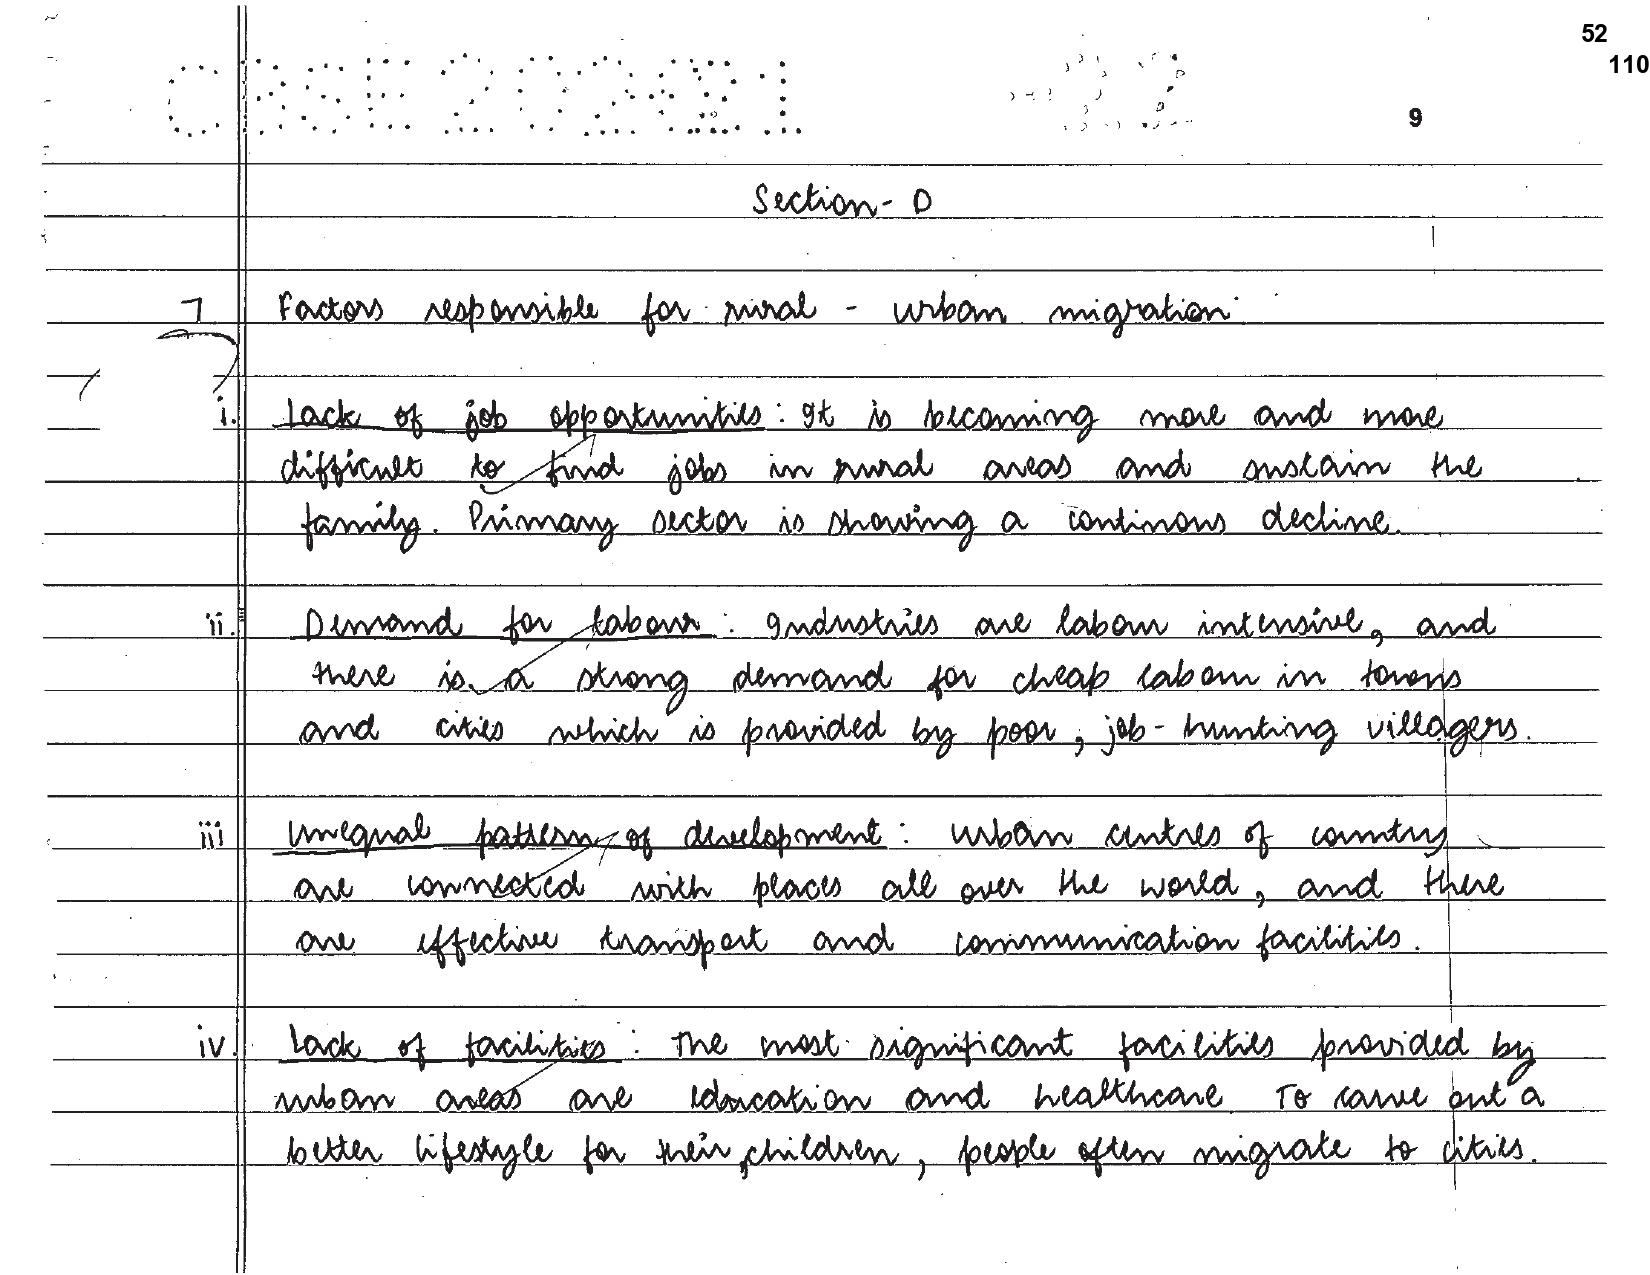 52
110
CBSE 202
9
Section - D
7 Factors responsible for rural - urban migration
i. Lack of job opportunities : It is becoming more and more
difficult to find jobs in rural areas and sustain the
family. Primary sector is showing a continous decline.
ii. Demand for labour : Industries are labour intensive, and
there is a strong demand for cheap labour in towns
and cities which is provided by poor, job-hunting villagers.
iii Unequal pattern of development : Urban centres of country
are connected with places all over the world, and there
are effective transport and communication facilities.
iv. Lack of facilities : The most significant facilities provided by
urban areas are education and healthcare To carve out a
better lifestyle for their children, people often migrate to cities.